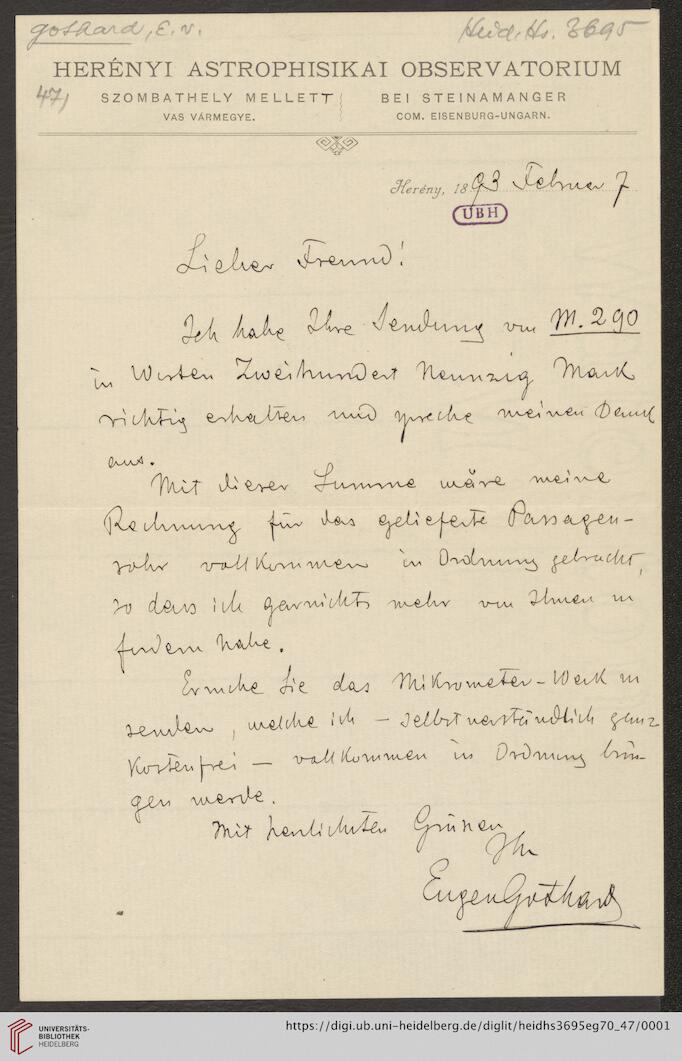 Gothard, E. v.
Heid. Hs. 3695
HERÉNYI ASTROPHISIKAI OBSERVATORIUM
47)
SZOMBATHELY MELLETT
BEI STEINAMANGER
VAS VÁRMEGYE.
COM. EISENBURG-UNGARN.
Herény, 1893 Februar 7
UBH
Lieber Freund!
Ich habe Ihre Sendung von M. 290
in Worten Zweihundert Neunzig Mark
richtig erhalten und spreche meinen Dank
aus.
Mit dieser Summe wäre meine
Rechnung für das gelieferte Passagen-
rohr vollkommen in Ordnung gebracht,
so dass ich garnichts mehr von Ihnen zu
fordern habe.
Ersuche Sie das Mikrometer-Werk zu
senden, welche ich – selbstverständlich ganz
Kostenfrei – vollkommen in Ordnung brin-
gen werde.
Mit herzlichsten Grüssen
Ihr
Eugen Gothard
UNIVERSITÄTS-
BIBLIOTHEK
HEIDELBERG
https://digi.ub.uni-heidelberg.de/diglit/heidhs3695eg70_47/0001